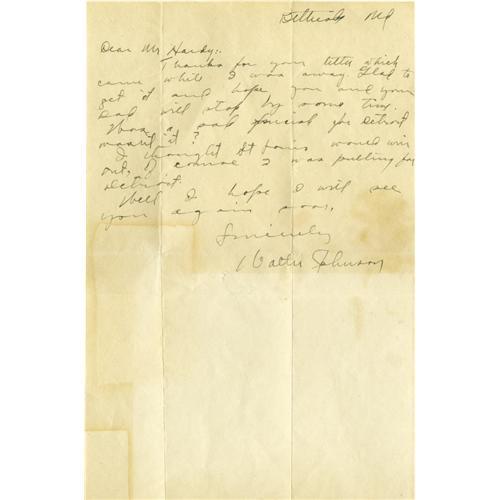 Bethesda Md
Dear Mr Hardy:.
Thanks for your letter which
came while I was away. Glad to
get it and hope you and your
Dad will stop by some time.
Was a sad for Detroit
wasn't it?
I thought St Louis would win
out, of course I was pulling for
Detroit.
Well I hope I will see
you again soon,
Sincerely
Walter Johnson